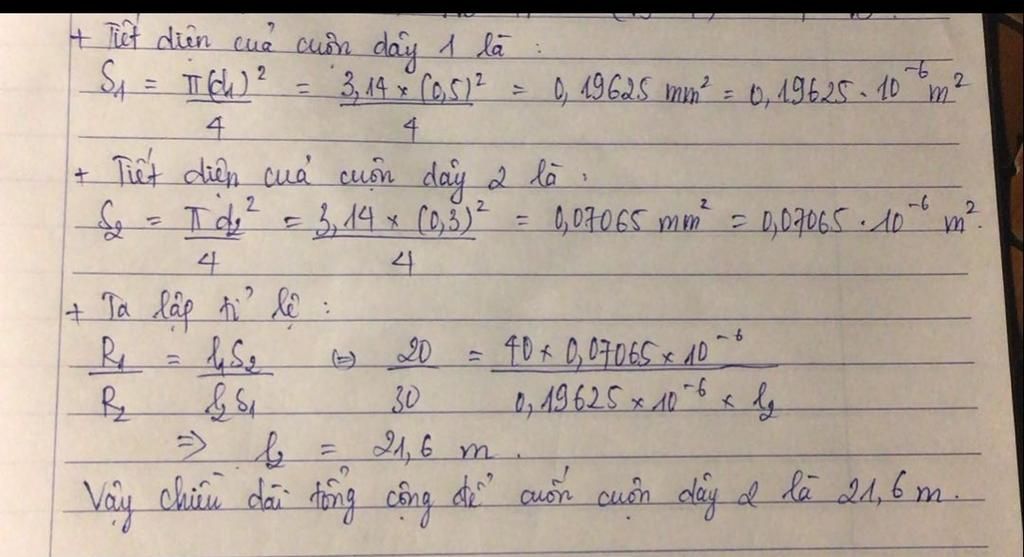 + Tiết diện cuả cuộn dây 1 là :
S₁ = π(d₁)²/4 = 3,14 × (0,5)²/4 = 0,19625 mm² = 0,19625 · 10⁻⁶ m²
+ Tiết diện cuả cuộn dây 2 là :
S₂ = πd₂²/4 = 3,14 × (0,3)²/4 = 0,07065 mm² = 0,07065 · 10⁻⁶ m².
+ Ta lập tỉ lệ :
R₁/R₂ = l₁S₂/l₂S₁ (=) 20/30 = 40 × 0,07065 × 10⁻⁶/0,19625 × 10⁻⁶ × l₂
⇒ l₂ = 21,6 m .
Vậy chiều dài tổng cộng để cuốn cuộn dây 2 là 21,6 m.